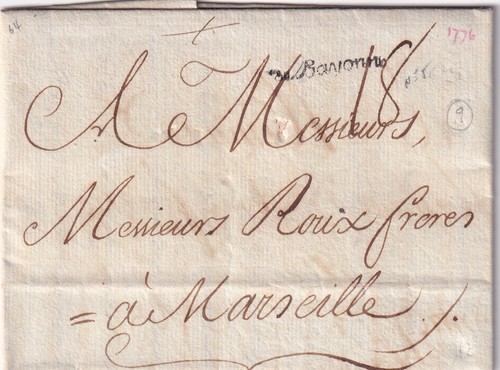 64
1776
Bayonne
18
9
A Messieurs,
Messieurs Roux freres
= à Marseille ./.